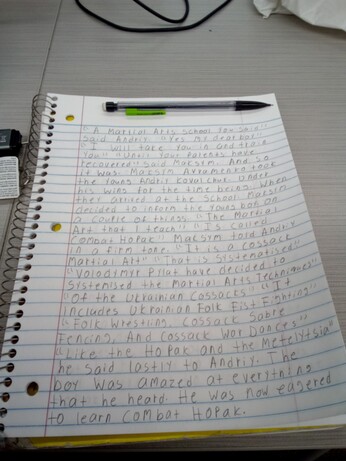 "A Martial Arts School You Said"
Said Andriy. "Yes My dear boy"
"I will take you in and train
You" "Until Your Parents have
recovered" Said Maksym. And so
it was. Maksym Avramenko took
the Young Andriy Kovalchuk. Under
his wing for the time being. When
they arrived at the School Maksym
decided to inform the Young boy on
a couple of things. "The Martial
Art that I teach" "Is called
Combat Hopak" Maksym told Andriy
in a firm tone. "It is a Cossack
Martial Art" "That is Systematised"
"Volodimyr Pylat have decided to
Systemised the Martial Arts Techniques"
"Of the Ukrainian Cossacks" "It
includes Ukrainian Folk Fist Fighting"
"Folk Wrestling, Cossack Sabre
Fencing, And Cossack War Dances"
"Like the Hopak and the Metelytsia"
he said lastly to Andriy. The
boy was amazed at everything
that he heard. He was now eagered
to learn Combat Hopak.